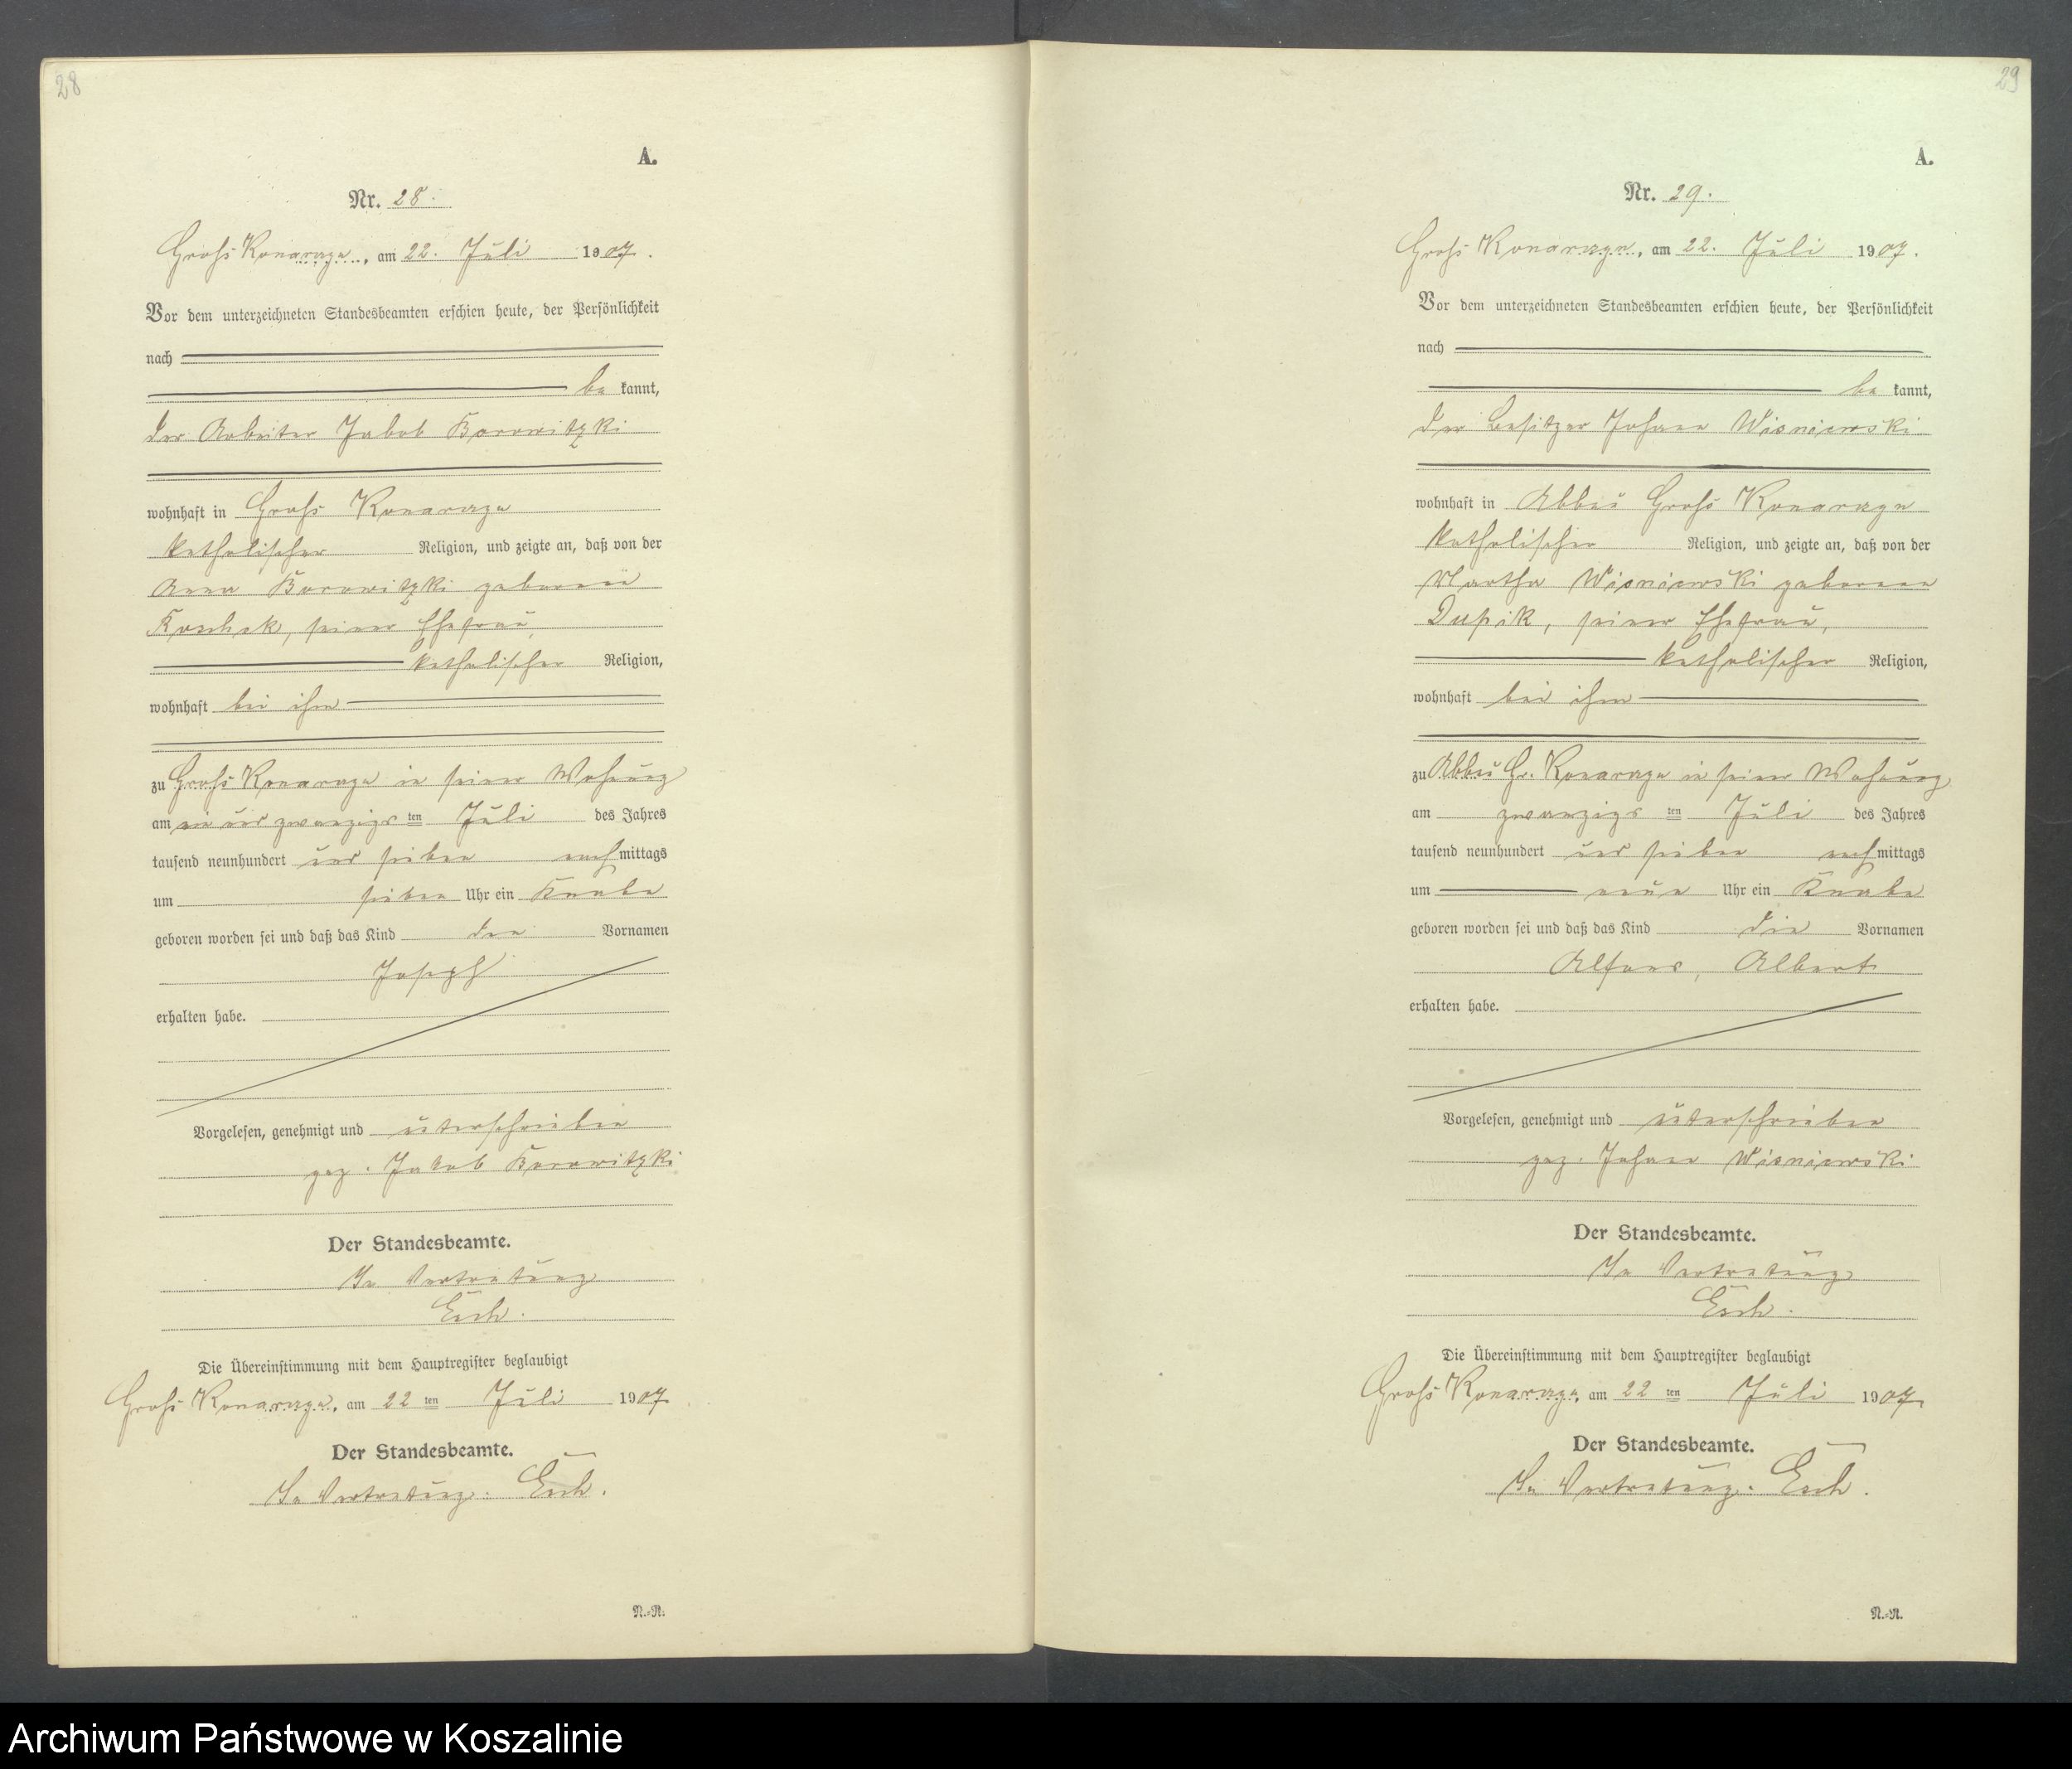 28
A.
Nr. 28.
Groß Konarazyn, am 22. Juli 1907.
Vor dem unterzeichneten Standesbeamten erschien heute, der Persönlichkeit
nach
be kannt,
der Arbeiter Jakob Borowitzki
wohnhaft in Groß Konarzyn
katholischer Religion, und zeigte an, daß von der
Anna Borowitzki geborenen
Koschek, seiner Ehefrau,
katholischer Religion,
wohnhaft bei ihm
zu Groß Konarzyn in seiner Wohnung
am ein und zwanzigs ten Juli des Jahres
tausend neunhundert und sieben nach mittags
um sieben Uhr ein Knabe
geboren worden sei und daß das Kind den Vornamen
Joseph
erhalten habe.
Vorgelesen, genehmigt und unterschrieben
gez. Jakob Borowitzki
Der Standesbeamte.
In Vertretung
Esch.
Die Übereinstimmung mit dem Hauptregister beglaubigt
Groß Konarzyn, am 22 ten Juli 1907
Der Standesbeamte.
In Vertretung. Esch.
N.-R.
29
A.
Nr. 29.
Groß Konarzyn, am 22. Juli 1907.
Vor dem unterzeichneten Standesbeamten erschien heute, der Persönlichkeit
nach
be kannt,
der Besitzer Johann Wisniewski
wohnhaft in Abbau Groß Konarzyn
katholischer Religion, und zeigte an, daß von der
Martha Wisniewski geborenen
Dupik, seiner Ehefrau,
katholischer Religion,
wohnhaft bei ihm
zu Abbau Gr. Konarzyn in seiner Wohnung
am zwanzigs ten Juli des Jahres
tausend neunhundert und sieben nach mittags
um neun Uhr ein Knabe
geboren worden sei und daß das Kind die Vornamen
Alfons, Albert
erhalten habe.
Vorgelesen, genehmigt und unterschrieben
gez. Johann Wisniewski
Der Standesbeamte.
In Vertretung
Esch.
Die Übereinstimmung mit dem Hauptregister beglaubigt
Groß Konarzyn, am 22 ten Juli 1907.
Der Standesbeamte.
In Vertretung. Esch.
N.-R.
Archiwum Państwowe w Koszalinie